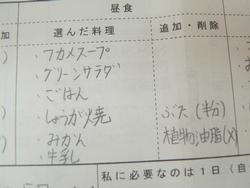 昼食
加
選んだ料理
追加・削除
・ワカメスープ
・グリーンサラダ
・ごはん
・しょうが焼
ぶた(半分)
・みかん
植物油脂(X)
・牛乳
私に必要なのは1日(自